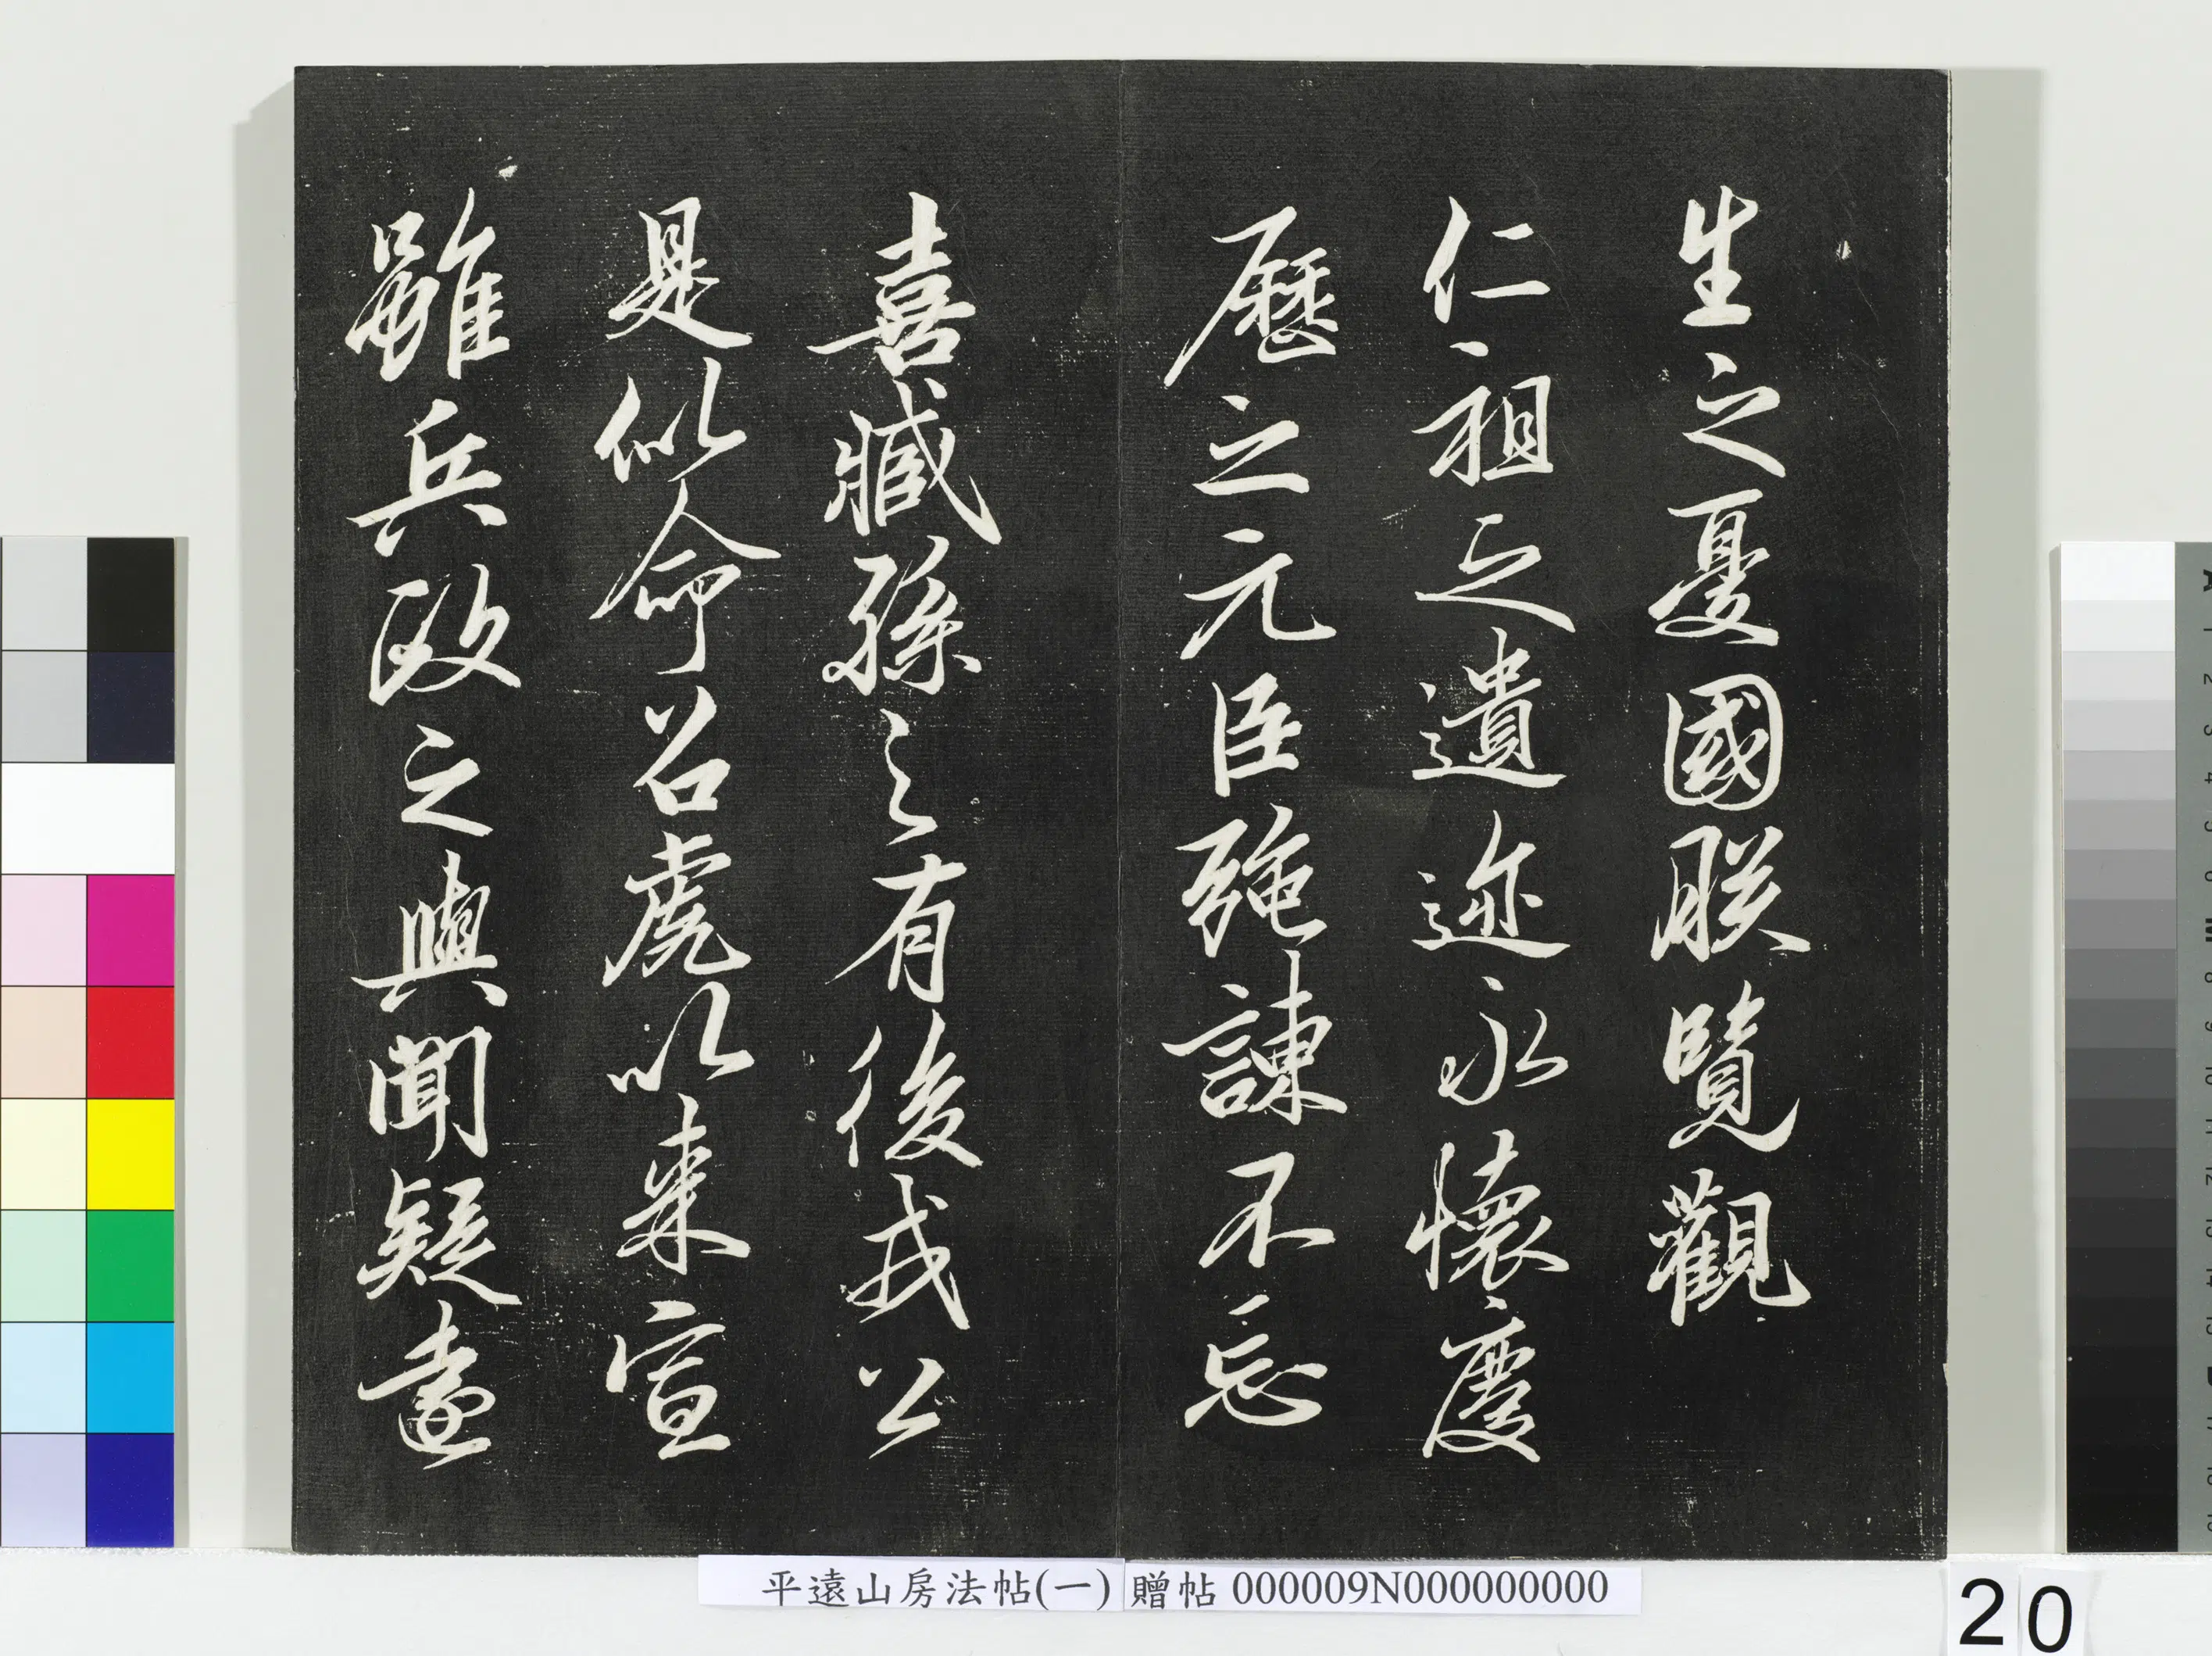 生之憂國朕覽觀
仁祖之遺迹永懷慶
歷之元臣強諫不忘
喜臧孫之有後戎公
是似命召虎以来宣
雖兵政之與聞疑遠
平遠山房法帖(一) 贈帖 000009N000000000
20